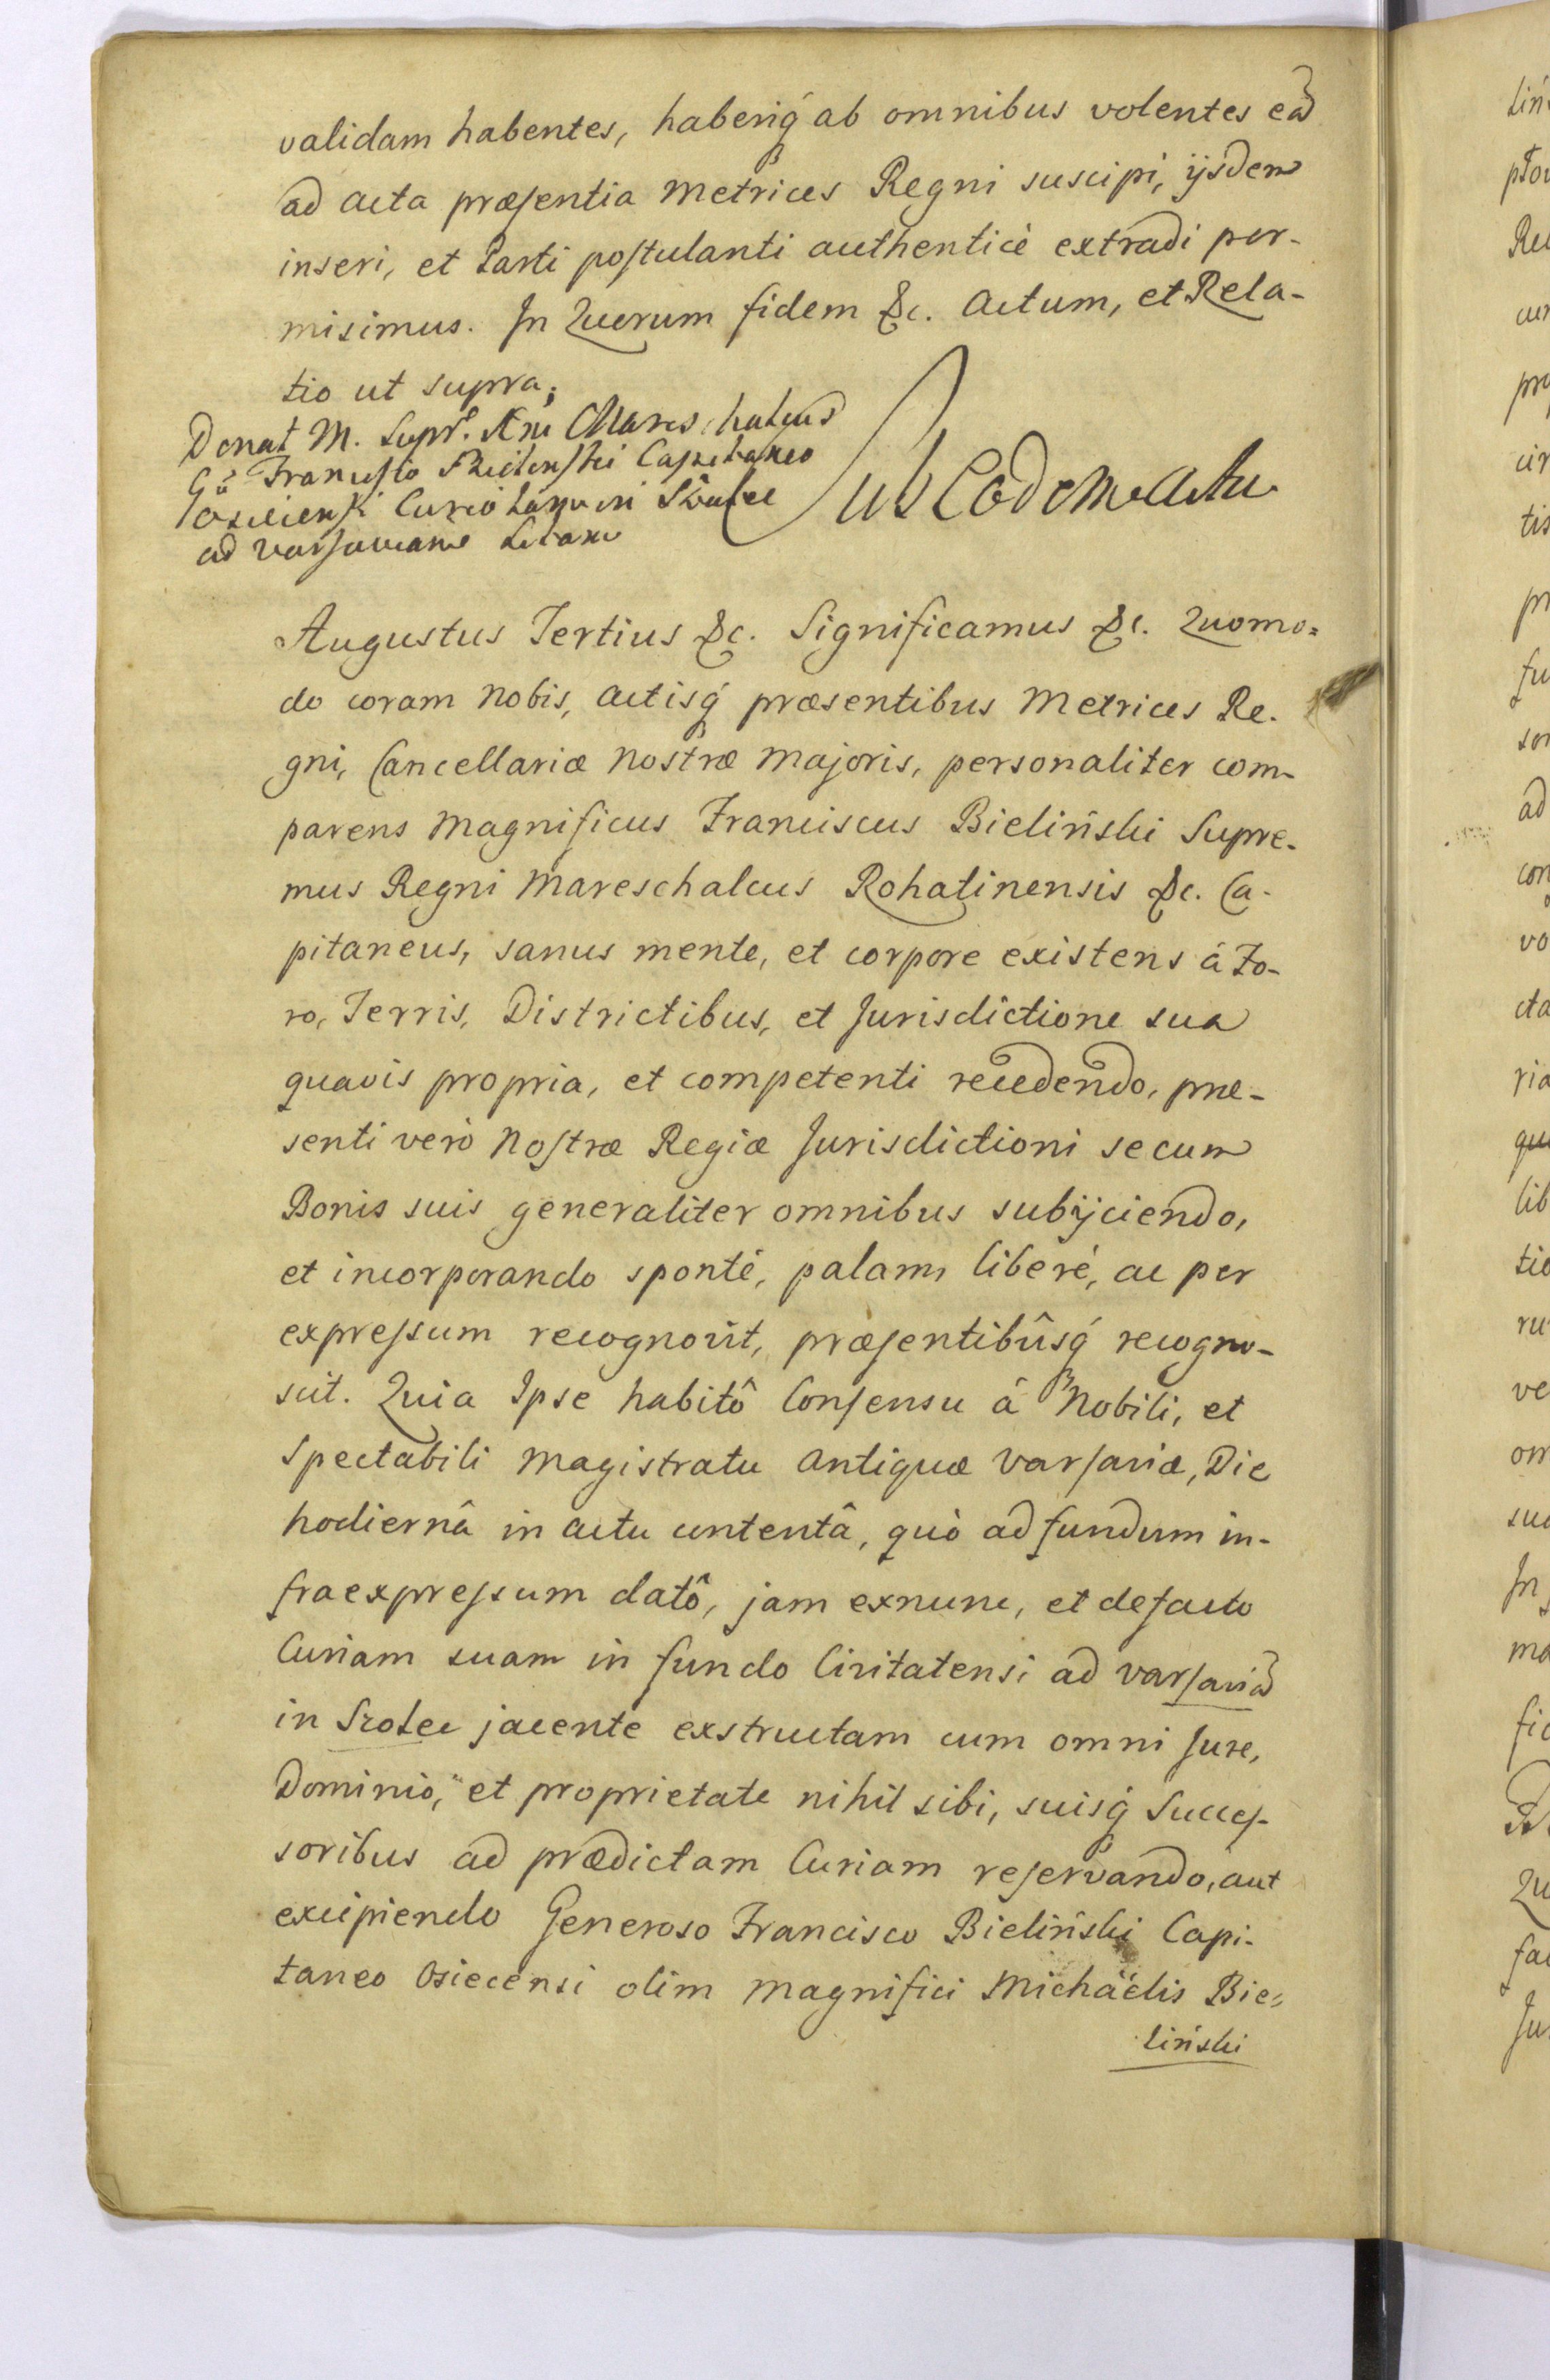 validam habentes, haberiq́ ab omnibus volentes ea͠
ad acta præsentia Metrices Regni suscipi, ijsdem
inseri, et Parti postulanti authenticè extradi per-
misimus. In Quorum fidem &c. Actum, et Rela-
tio ut supra;
Donat M. Supr. Rni Mareschalcus
Francisco Bielinski Capitaneo
ad Varsaviam
Sub Eodem Actu
Augustus Tertius &c. Significamus &c. Quomo=
do coram Nobis, Actisq́ præsentibus Metrices Re-
gni, Cancellariæ Nostræ Majoris, personaliter com-
parens Magnificus Franciscus Bieliński Supre-
mus Regni Mareschalcus Rohatinensis &c. Ca-
pitaneus, sanus mente, et corpore existens á Fo-
ro, Terris, Districtibus, et Jurisdictione sua
quavis propria, et competenti recedendo, præ-
senti verò Nostræ Regiæ Jurisdictioni se cum
Bonis suis generaliter omnibus subijciendo,
et incorporando spontè, palam liberè, ac per
expressum recognovit, præsentibûsq́ recogno-
scit. Quia Ipse habitô Consensu á Nobili, et
Spectabili Magistratu Antiquæ Varsaviæ, Die
hodiernâ in actu contentâ, quò ad fundum in-
fraexpressum datô, jam exnunc, et defacto
Curiam suam in fundo Civitatensi ad Varsavia͠
in Szolec jacente exstructam cum omni Jure,
Dominio, et proprietate nihil sibi, suisq́ Succes-
soribus ad prædictam Curiam reservando, aut
excipiendo Generoso Francisco Bieliński Capi-
taneo Osiecensi olim Magnifici Michaëlis Bie=
liński